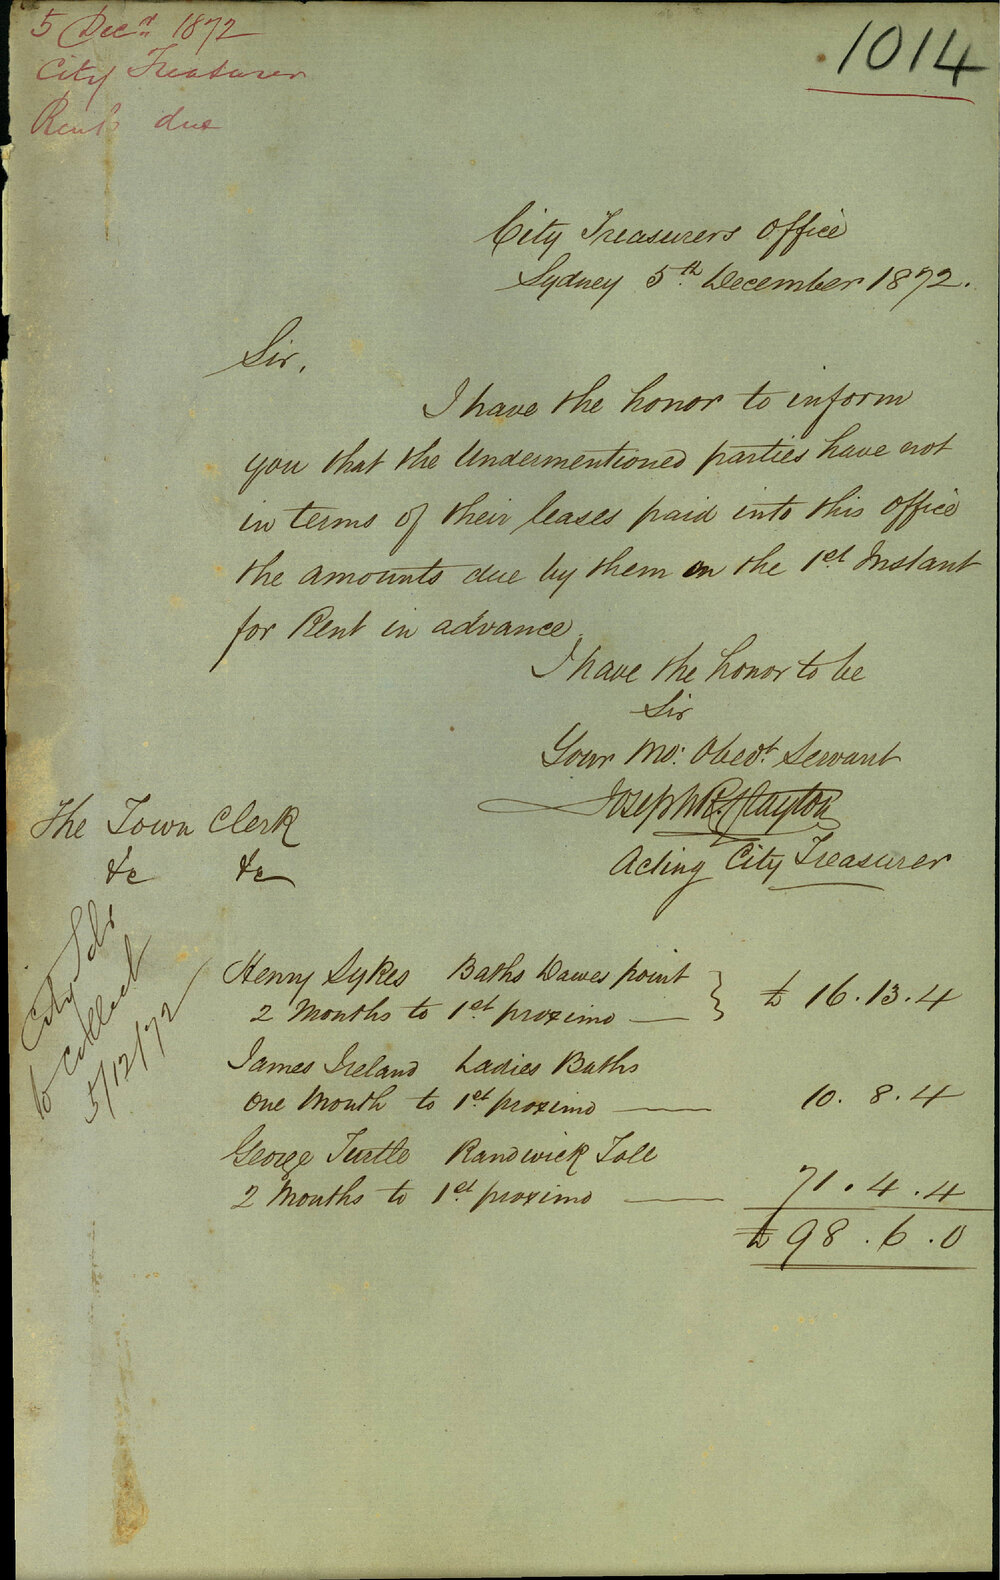 5 Decr 1872
City Treasurer
Rent due
1014
City Treasurers Office
Sydney 5th December 1872.
Sir,
I have the honor to inform
you that the Undermentioned parties have not
in terms of their leases paid into this Office
the amounts due by them on the 1st Instant
for Rent in advance.
I have the honor to be
Sir
Your Mo: Obedt Servant
Joseph R. Clayton
Acting City Treasurer
The Town Clerk
&c &c
City Solr
to Collect
5/12/72
Henry Sykes Baths Dawes point
2 Months to 1st proximo — } £ 16.13.4
James Ireland Ladies Baths
One Month to 1st proximo — 10.8.4
George Turtle Randwick Toll
2 Months to 1st proximo — 71.4.4
£98.6.0